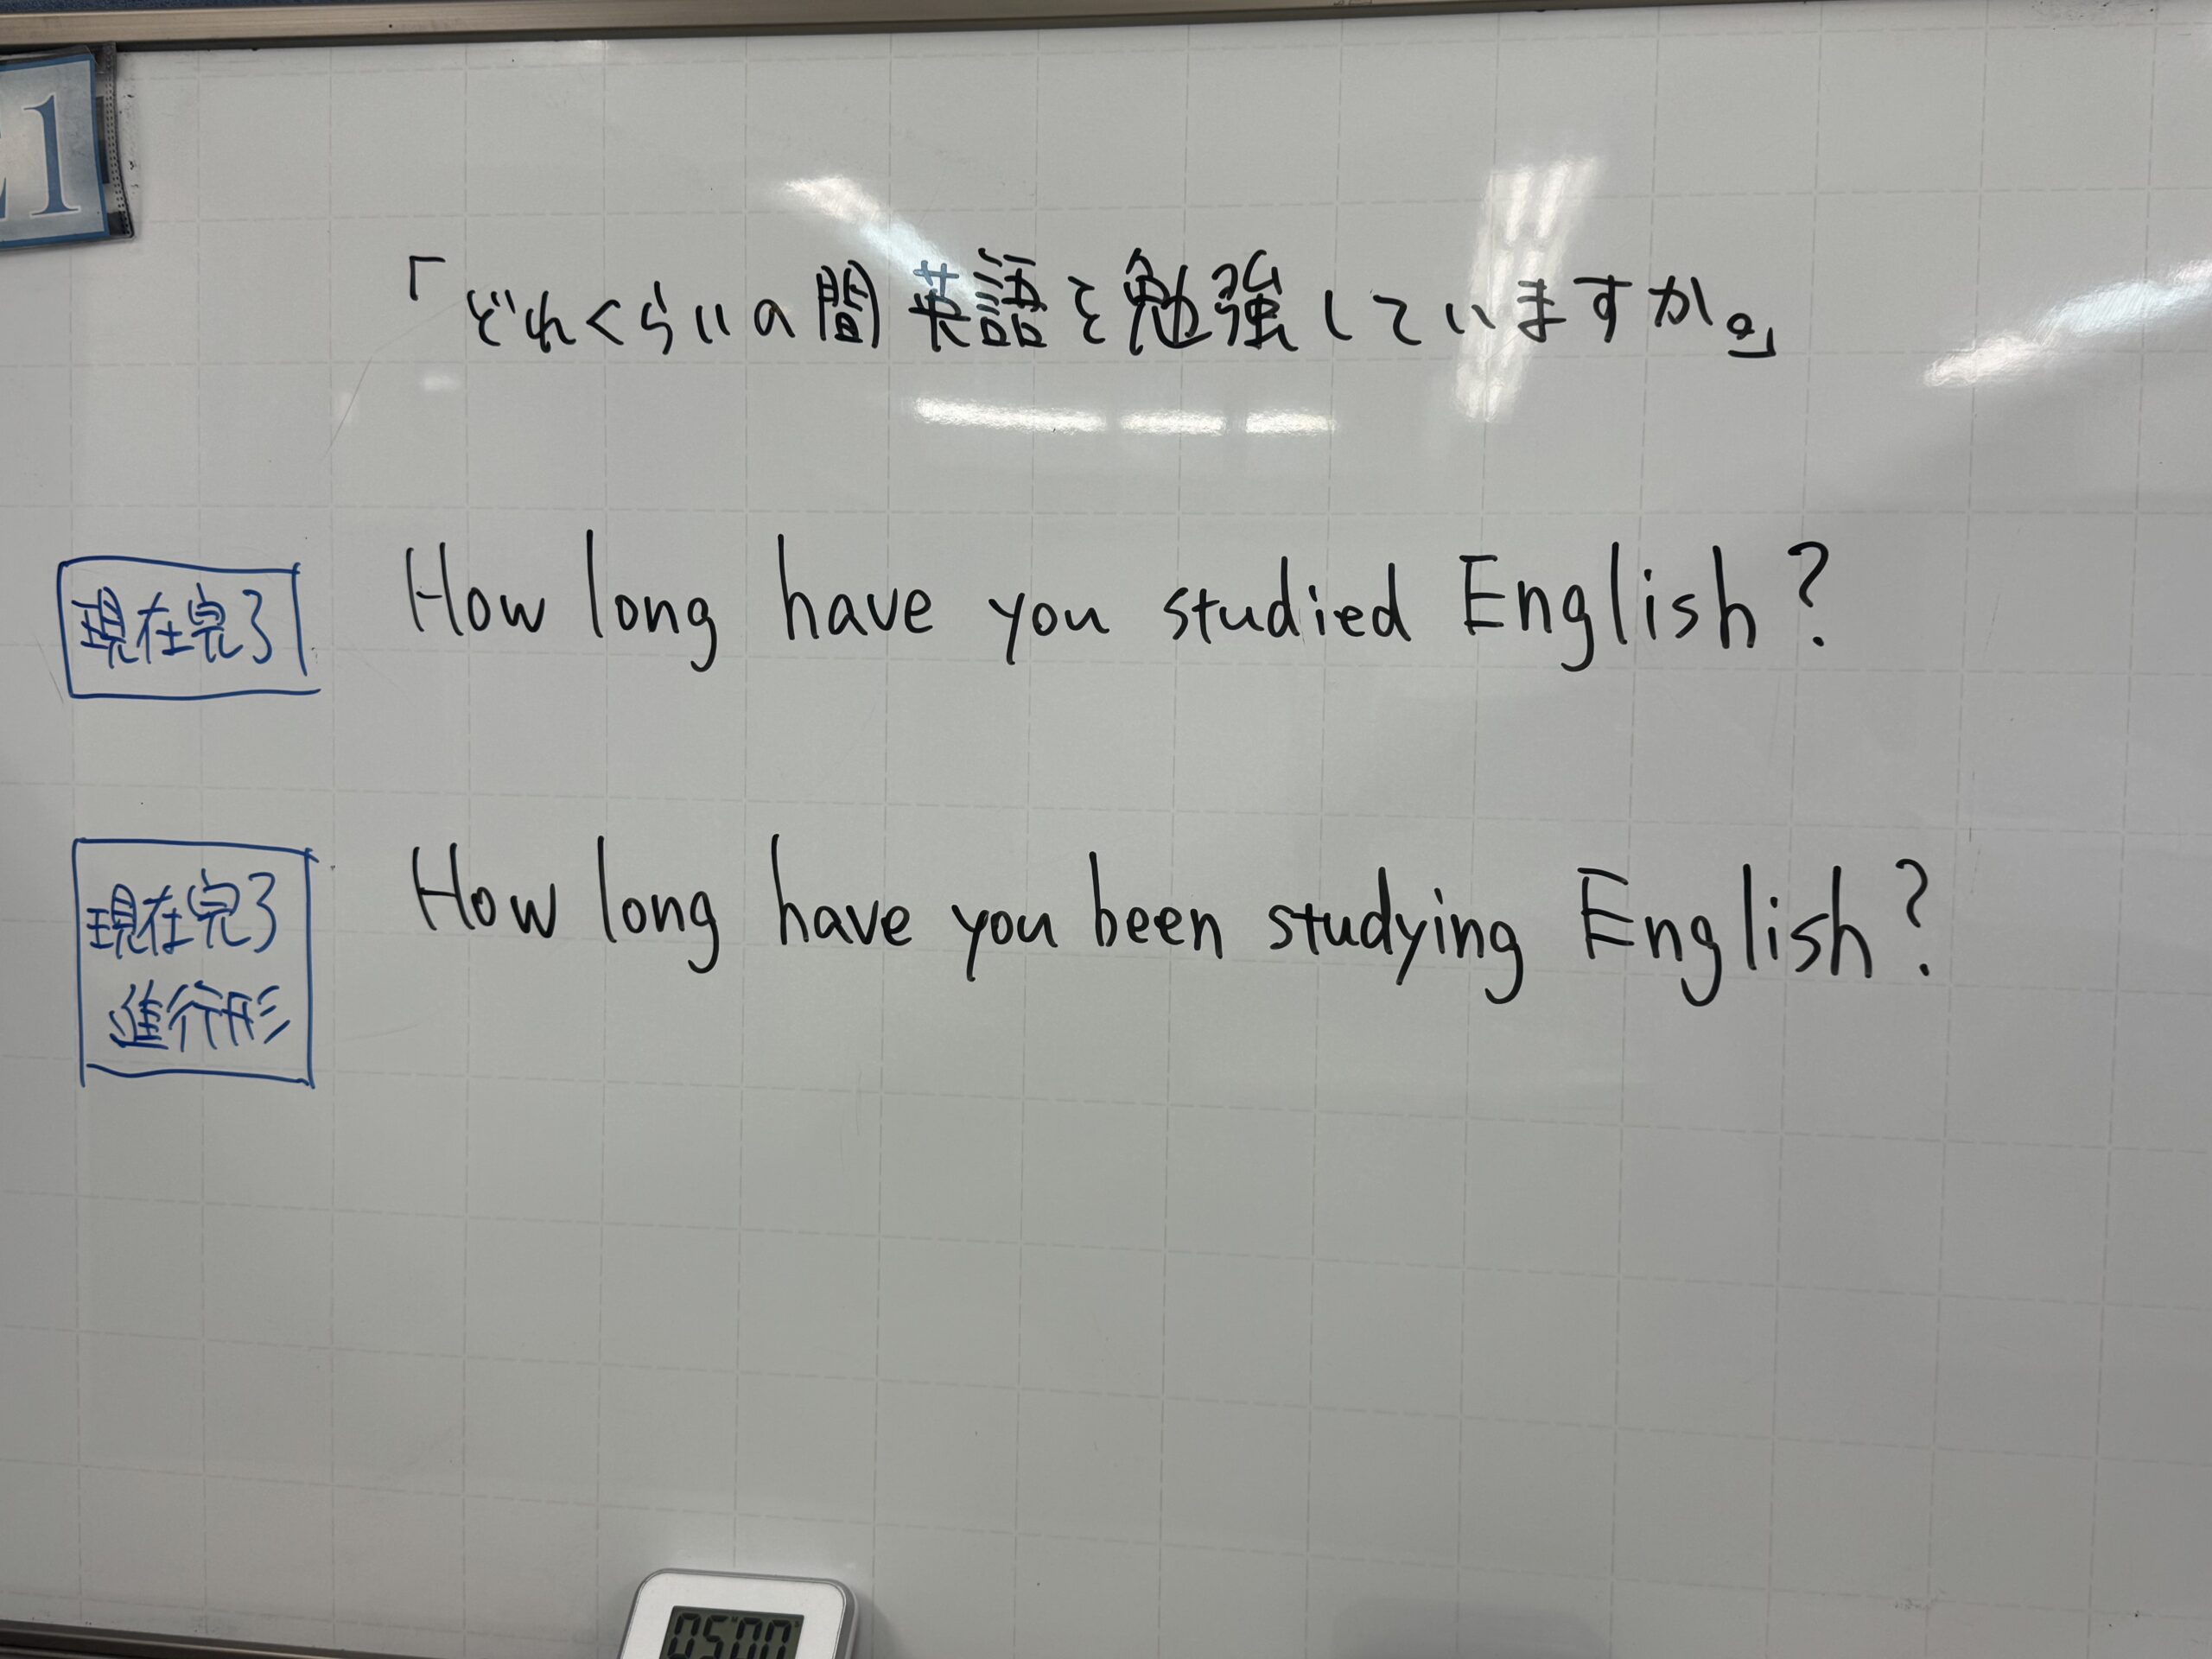 「どれくらいの間英語を勉強していますか。」
現在完了 How long have you studied English?
現在完了
進行形
How long have you been studying English?
05:00